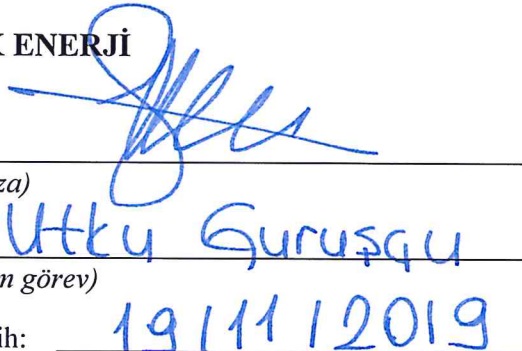 K ENERJİ
za)
Utku Guruşçu
n görev)
ih: 19/11/2019